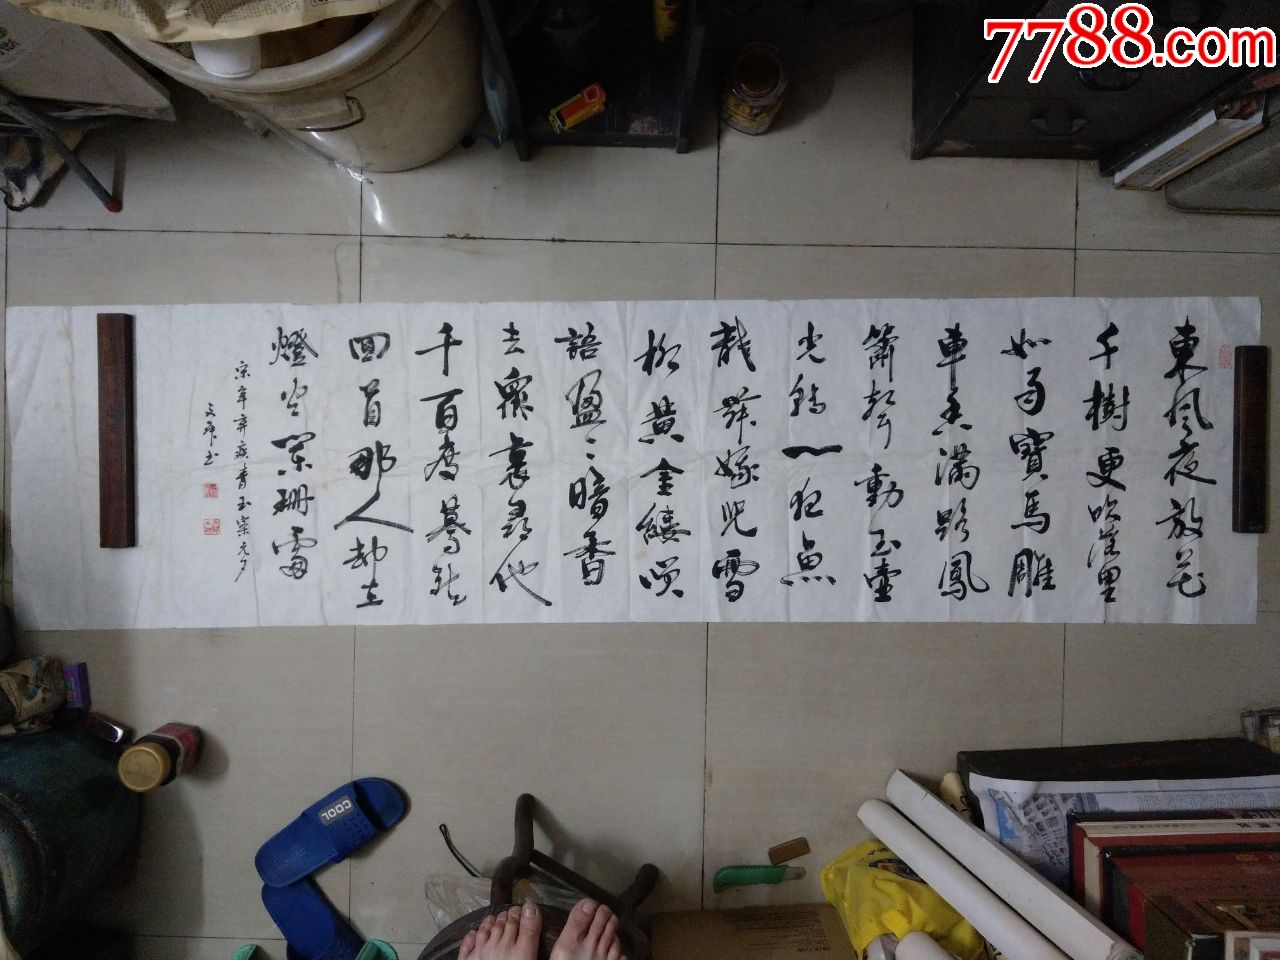 7788.com
東風夜放花
千樹更吹落星
如雨寶馬雕
車香滿路鳳
簫聲動玉壺
光轉一夜魚
龍舞蛾兒雪
柳黃金縷笑
語盈々暗香
去衆裏尋他
千百度驀然
回首那人却在
燈火闌珊處
宋辛弃疾青玉案元夕
书
COOL